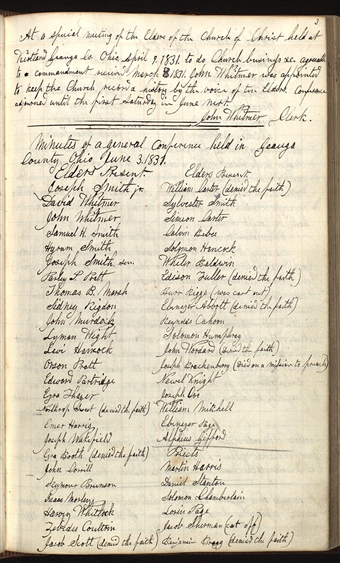 3
At a special meeting of the Elders of the Church of Christ held at
Kirtland Geauga Co. Ohio April 9, 1831. to do Church business &c. agreeable
to a commandment received March 8 1831. John Whitmer was appointed
to keep the Church record & history by the voice of ten Elders. Conference
adjourned until the first Saturday in June next.
John Whitmer Clerk.
Minutes of a general Conference held in Geauga
County, Ohio June 3. 1831.
Elders Present
Joseph Smith jr.
David Whitmer
John Whitmer
Samuel H. Smith
Hyrum Smith
Joseph Smith sen.
Parley P. Pratt
Thomas B. Marsh
Sidney Rigdon
John Murdock
Lyman Wight
Levi Hancock
Orson Pratt
Edward Partridge
Ezra Thayer
Northrop Sweet (denied the faith)
Emer Harris
Joseph Wakefield
Ezra Booth (denied the faith)
John Corrill
Seymour Brunson
Isaac Morley
Harvey Whitlock
Zebedee Coultrin
Jacob Scott (denied the faith)
Elders Present
William Carter (denied the faith)
Sylvester Smith
Simeon Carter
Calvin Beebe
Solomon Hancock
Wheeler Baldwin
Edison Fuller (denied the faith)
Burr Riggs (was cast out)
Ebenezer Abbott (denied the faith)
Reynolds Cahoon
Solomon Humphrey
John Woodard (denied the faith)
Joseph Brackenbury (died on a mission to preach)
Newel Knight
Joseph Coe
William Mitchell
Ebenezer Page
Alpheus Gifford
Priests
Martin Harris
Daniel Stanton
Solomon Chamberlain
Losie Page
Jacob Sherman (cut off)
Benjamin Bragg (denied the faith)